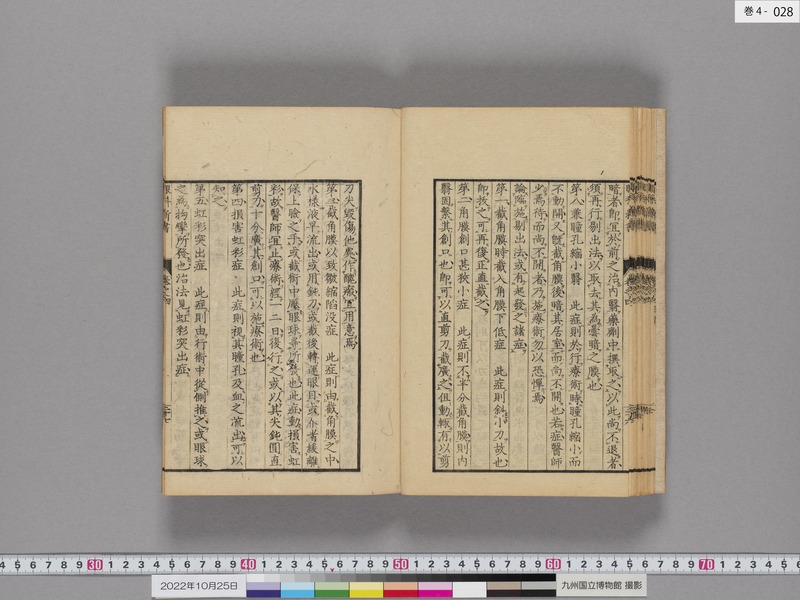 巻4- 028
暗者即宜於前之治内翳藥劑中撰取之以此尚不退者
須再行剔出法以取去其為雲暗之膜也
第八兼瞳孔縮小翳 此症則於行療術時瞳孔縮小而
不動開又既截角膜後暗其居室而尚不開也若症醫師
少焉待而尚不開者乃施療術勿以恐憚焉
論施剔出法或有起發之諸症
第一截角膜時截入角膜下低症 此症則斜小刀故也
即拔之可再復正直截之
第二角膜創口甚狹小症 此症則不半分截角膜則内
翳因繫其創口也即可以直剪刀截廣之但動輒有以剪
刀尖毀傷他處作醸癥宜用意焉
第三截角膜以致皺縮陷没症 此症則由截角膜之中
水樣液早流出或用鈍刀或截後轉運眼目或介者緩離
保上瞼之手或截術中壓眼球等所發也此症動損害虹
彩故醫師宜止療術經一二日後行之或以其尖鈍圓直
剪刀十分廣其創口可以施療術也
第四損害虹彩症 此症則視其瞳孔及血之流出可以
知之
第五虹彩突出症 此症則由行術中從側推之或眼球
之為拘攣所發也治法見虹彩突出症
眼科新書
卷之四
2022年10月25日
九州国立博物館 撮影